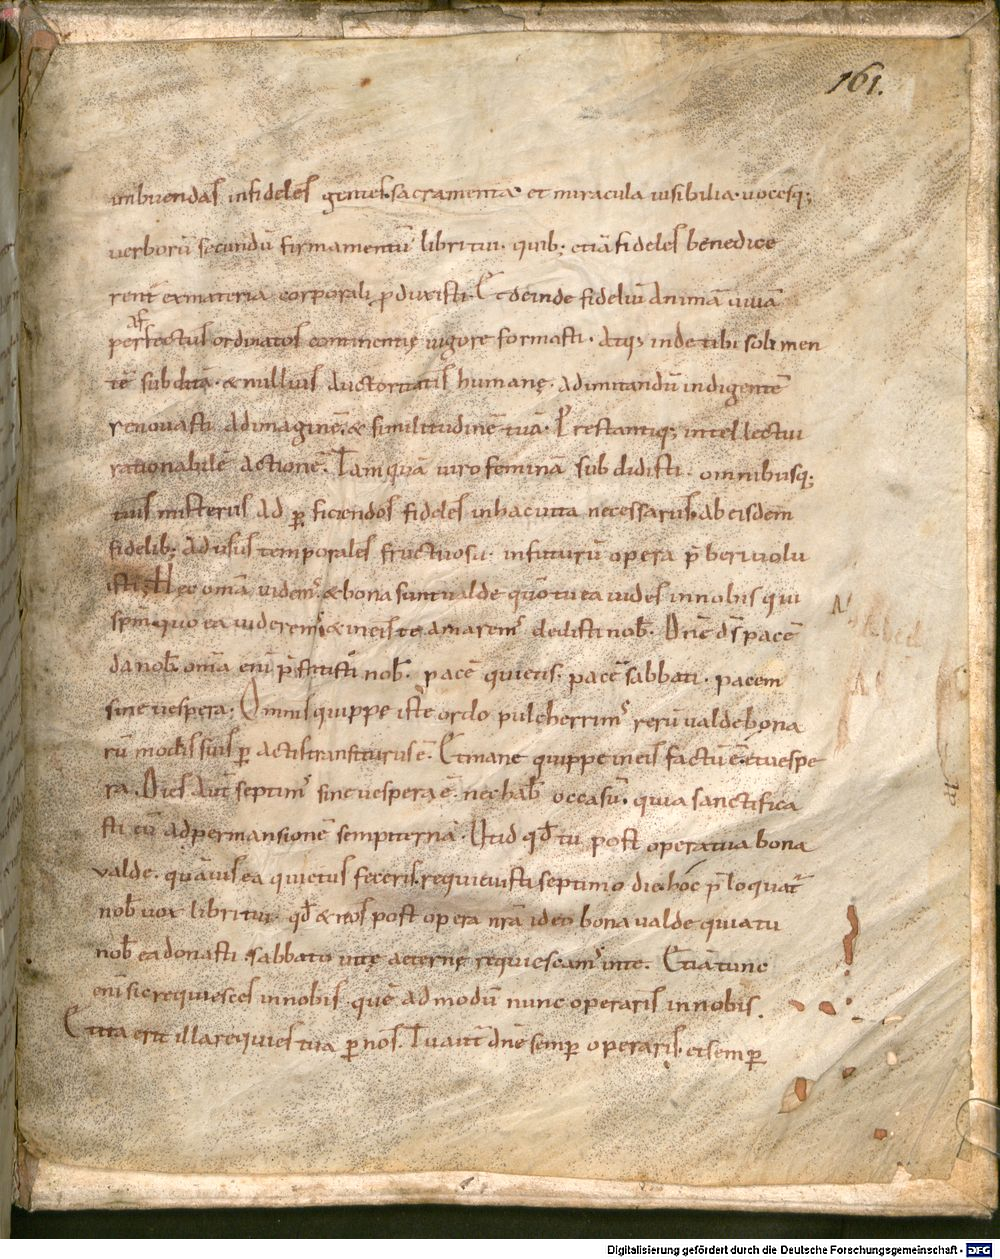 161.
imbuendas infideles gentes. sacramenta et miracula uisibilia. uocesq;
uerborū secundū firmamentū libri tui. quib; etiā fideles benedice
rent̄ ex materia corporali ꝓduxisti. Et deinde fideliū animā uiuā
af
perfectus ordinatos continentię uigore formasti. Atq; inde tibi soli men
tē subditā. & nullius auctoritatis humanę. ad imitandū indigentē
renouasti ad imaginē. & similitudinē tuā. Prestantiq; intellectui
rationabilē actionē. Tamquā uiro feminā subdidisti. omnibusq;
tuis misteriis ad ꝑficiendos fideles in hac uita necessariis. ab eisdem
fidelib; ad usus temporales fructuosa. in futurū opera p̄beri uolu
isti. Hęc om̄a uidem᾽. & bona sunt ualde quō tu ea uides in nobis qui
sp̄m quo ea uiderem᾽ & in eis te amarem᾽ dedisti nob̄. Dn̄e ds̄ pacē
da nob̄. om̄a eni p̄stitisti nob̄. pacē quietis. pacē sabbati. pacem
sine uespera. Omnis quippe iste ordo pulcherrim᾽ rerū ualde bona
rū modis suis ꝑactis transiturus ē. Et mane quippe in eis factū ē. et uespe
ra. Dies aut̄ septim᾽ sine uespera ē. nec hab̄ occasū. quia sanctifica
sti eū ad permansionē sempiternā. Ut id qd̄ tu post opera tua bona
ualde. quāuis ea quietus feceris. requieuisti septimo die. hoc p̄loquat᾽
nob̄ uox libri tui. qd̄ & nos post opera nr̄a ideo bona ualde quia tu
nob̄ ea donasti sabbato uitę aeternę requiescam᾽ in te. Etiā tunc
eni sic requiesces in nobis quē ad modū nunc operaris in nobis.
Et ita erit illa requies tua ꝑ nos. Tu aut̄ dn̄e semꝑ operaris. et semꝑ